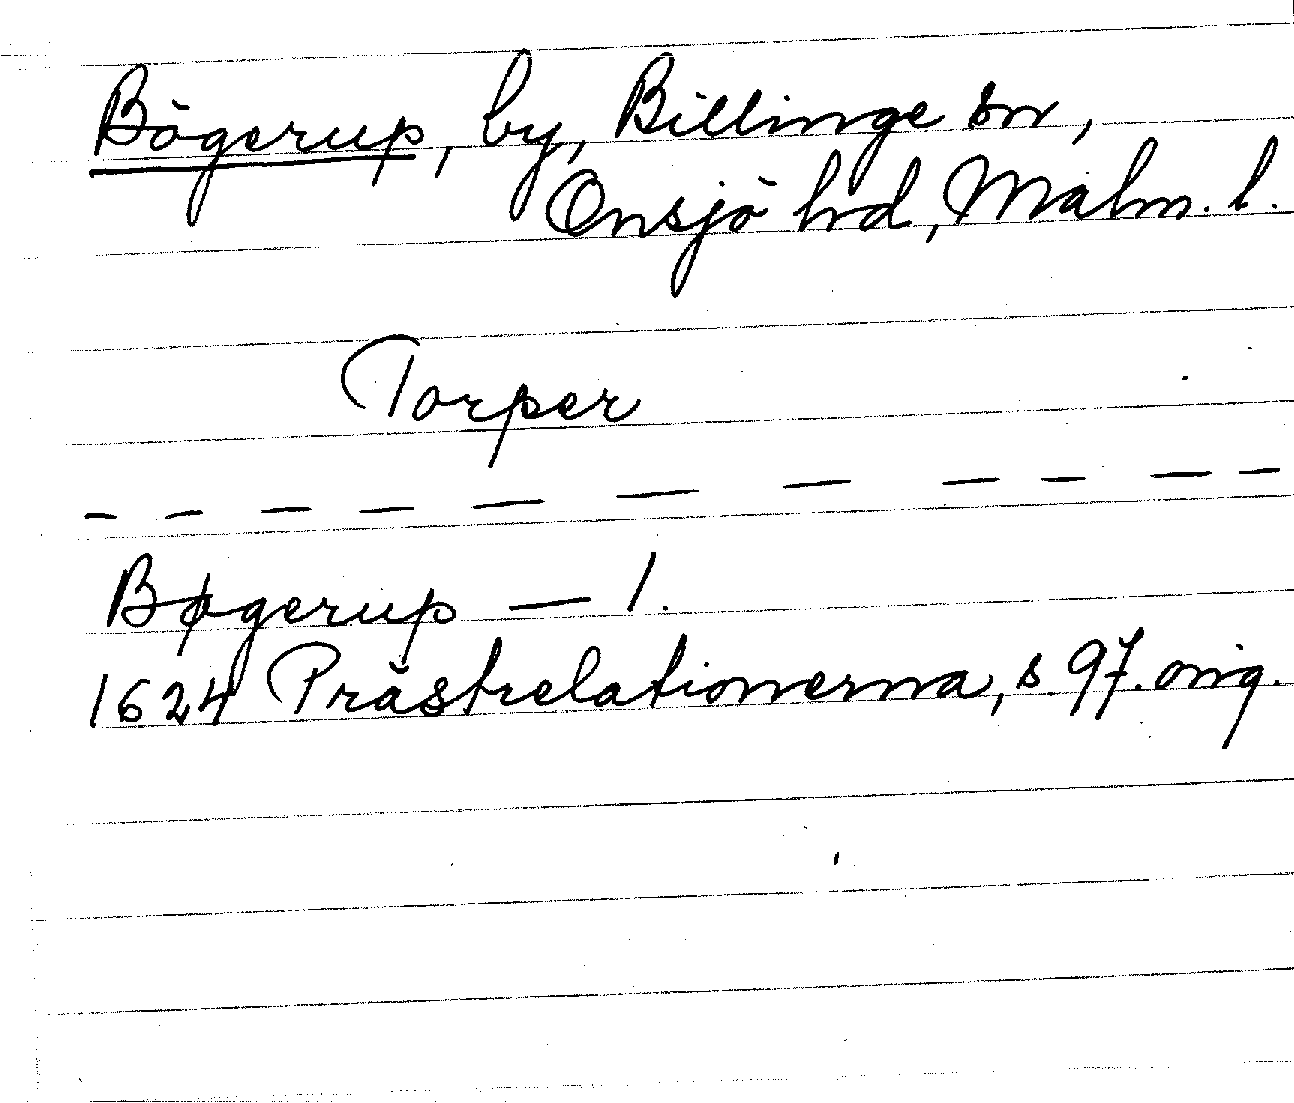 Bögerup, by, Billinge sn,
Onsjö hd, Malm. l.
Torper
— — — — — — — — — —
Bøgerup — 1.
1624 Prästrelationerna, s 97. orig.